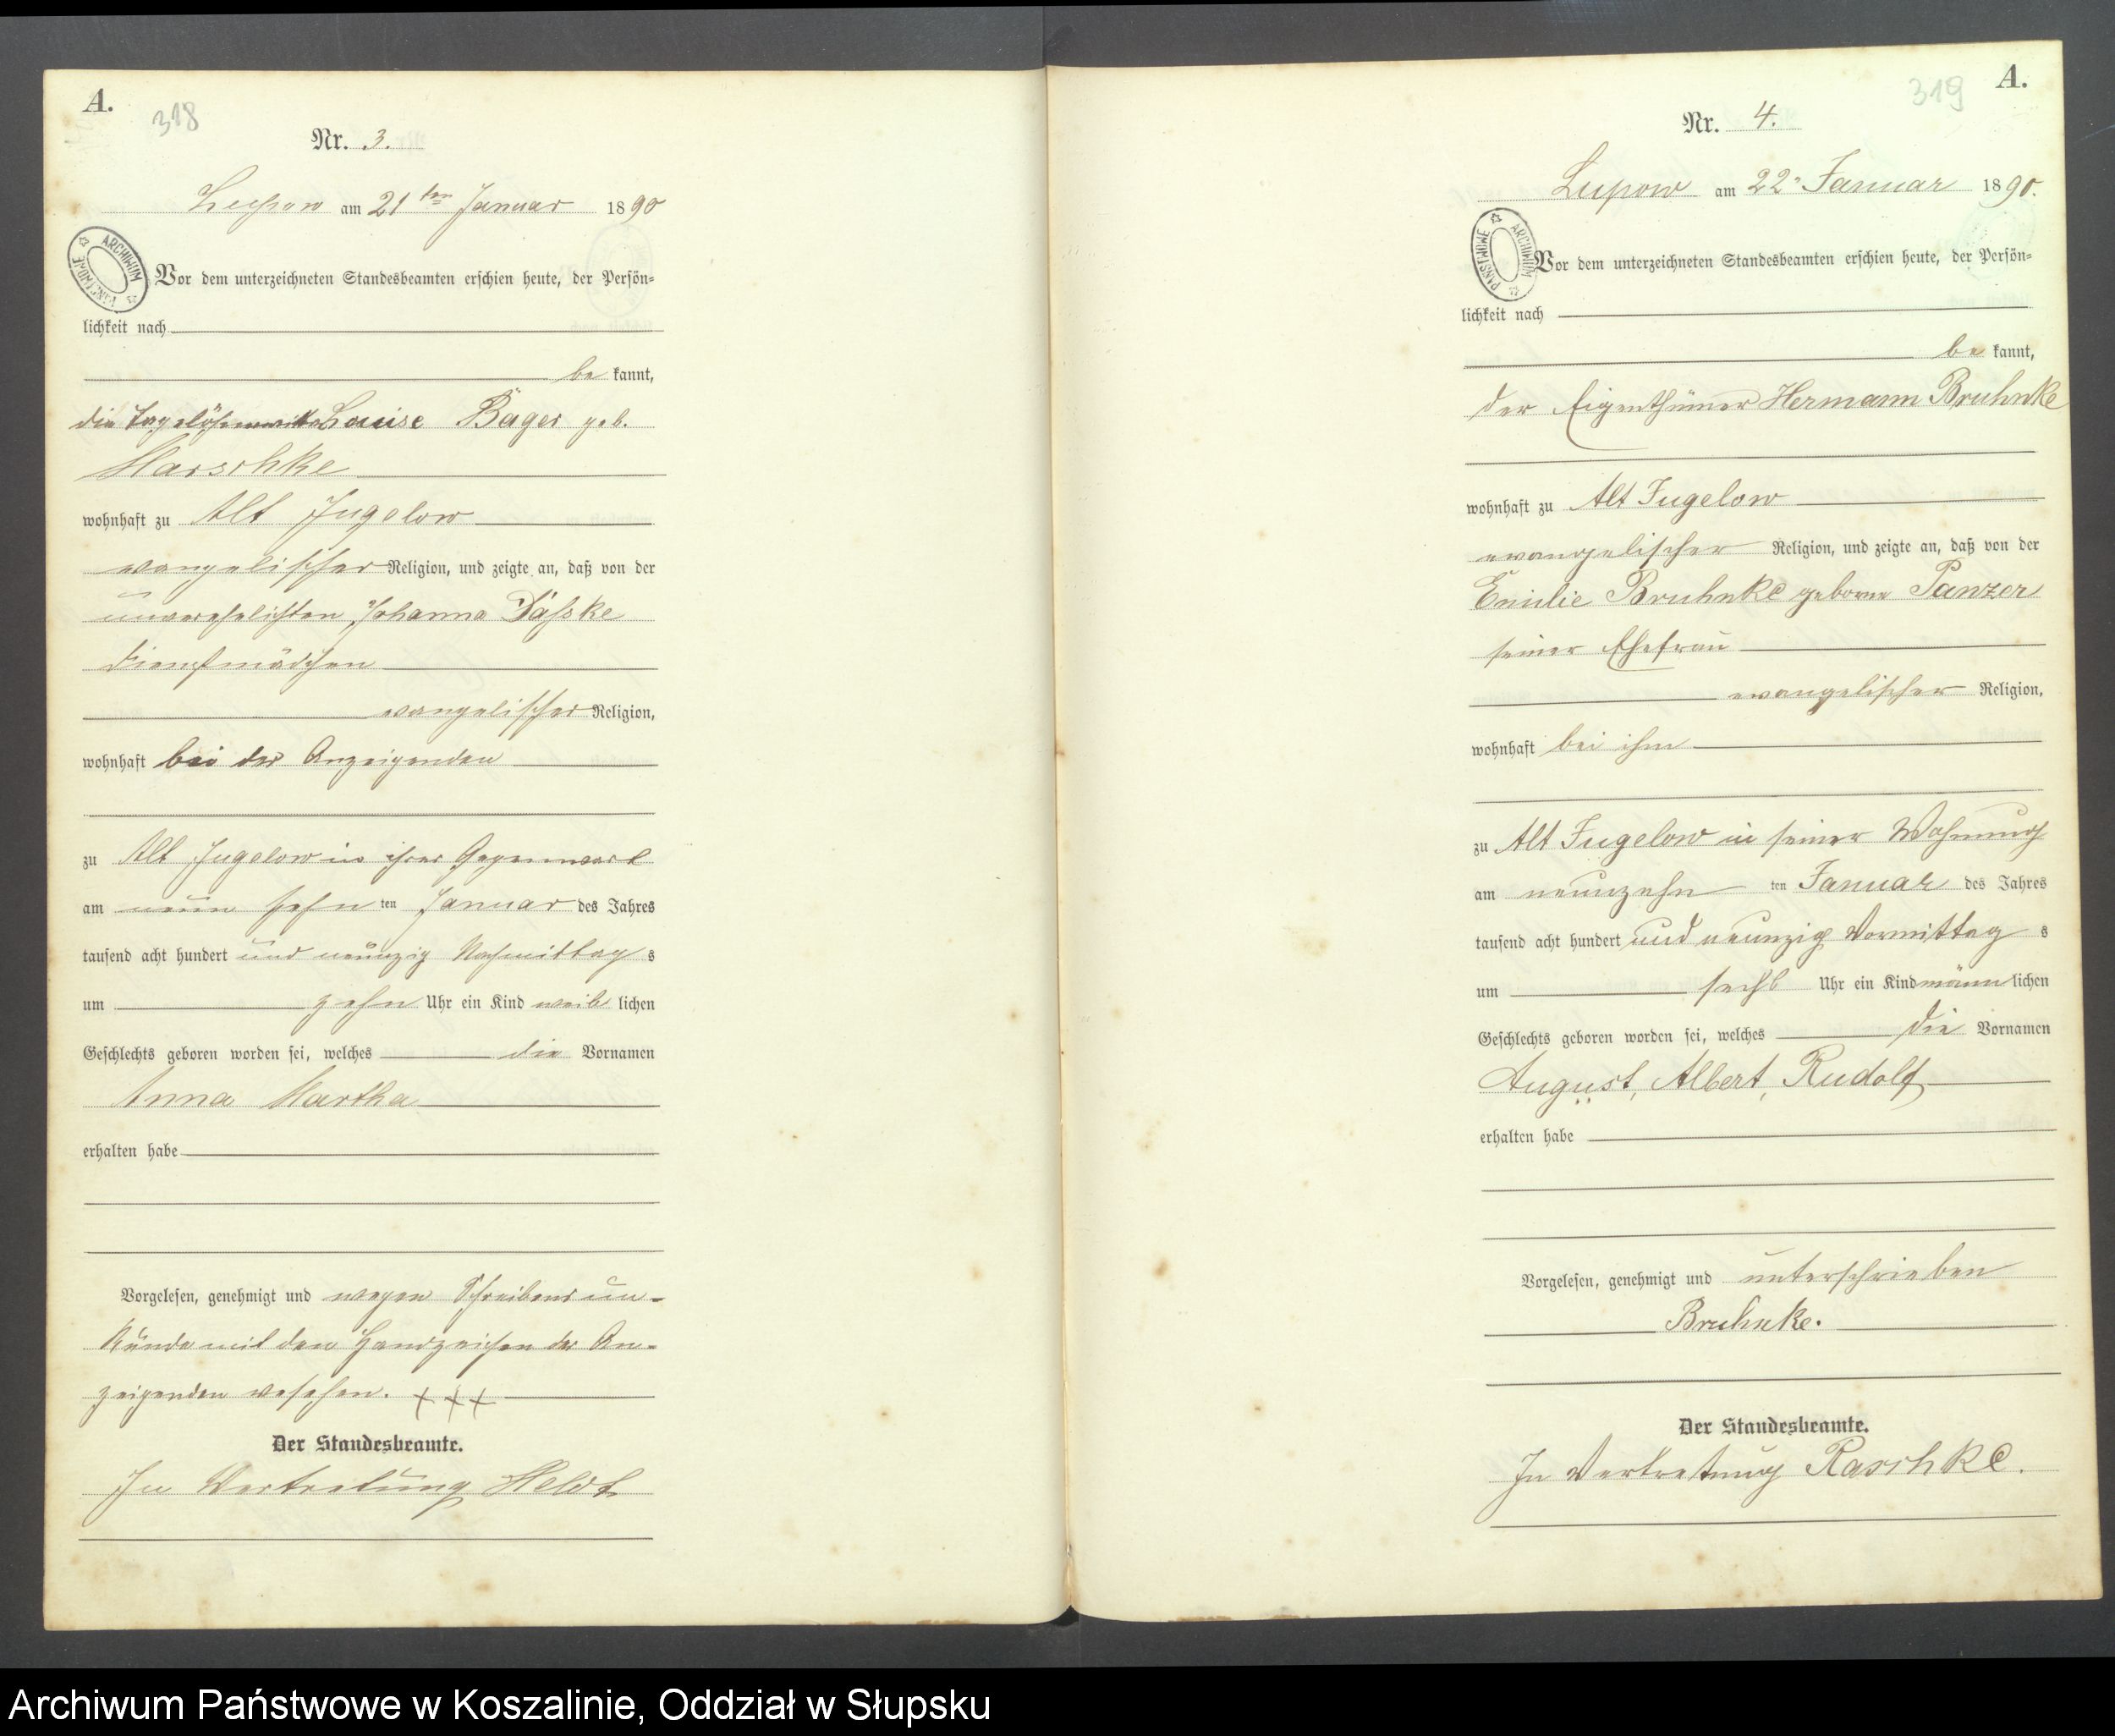 A.
318
Nr. 3.
Lupow am 21ten Januar 1890
ARCHIWUM PAŃSTWOWE
Vor dem unterzeichneten Standesbeamten erschien heute, der Persön=
lichkeit nach
be kannt,
die Louise Bager geb.
Marschke
wohnhaft zu Alt Jugelow
evangelischer Religion, und zeigte an, daß von der
unverehelichten Johanna Päske
Dienstmädchen
evangelischer Religion,
wohnhaft bei der Anzeigenden
zu Alt Jugelow in ihrer Gegenwart
am neun zehn ten Januar des Jahres
tausend acht hundert und neunzig Nachmittag s
um zehn Uhr ein Kind weib lichen
Geschlechts geboren worden sei, welches die Vornamen
Anna Martha
erhalten habe
Vorgelesen, genehmigt und wegen Schreibens un-
kunde mit den Handzeichen der An-
zeigenden versehen. +++
Der Standesbeamte.
In Vertretung Heldt
319
A.
Nr. 4.
Lupow am 22. Januar 1890.
ARCHIWUM PAŃSTWOWE
Vor dem unterzeichneten Standesbeamten erschien heute, der Persön=
lichkeit nach
be kannt,
der Eigenthümer Hermann Bruhnke
wohnhaft zu Alt Jugelow
evangelischer Religion, und zeigte an, daß von der
Emilie Bruhnke geborne Panzer
seiner Ehefrau
evangelischer Religion,
wohnhaft bei ihm
zu Alt Jugelow in seiner Wohnung
am neunzehn ten Januar des Jahres
tausend acht hundert und neunzig Vormittag s
um sechs Uhr ein Kind männ lichen
Geschlechts geboren worden sei, welches die Vornamen
August, Albert, Rudolf
erhalten habe
Vorgelesen, genehmigt und unterschrieben
Bruhnke.
Der Standesbeamte.
In Vertretung Raschke.
Archiwum Państwowe w Koszalinie, Oddział w Słupsku